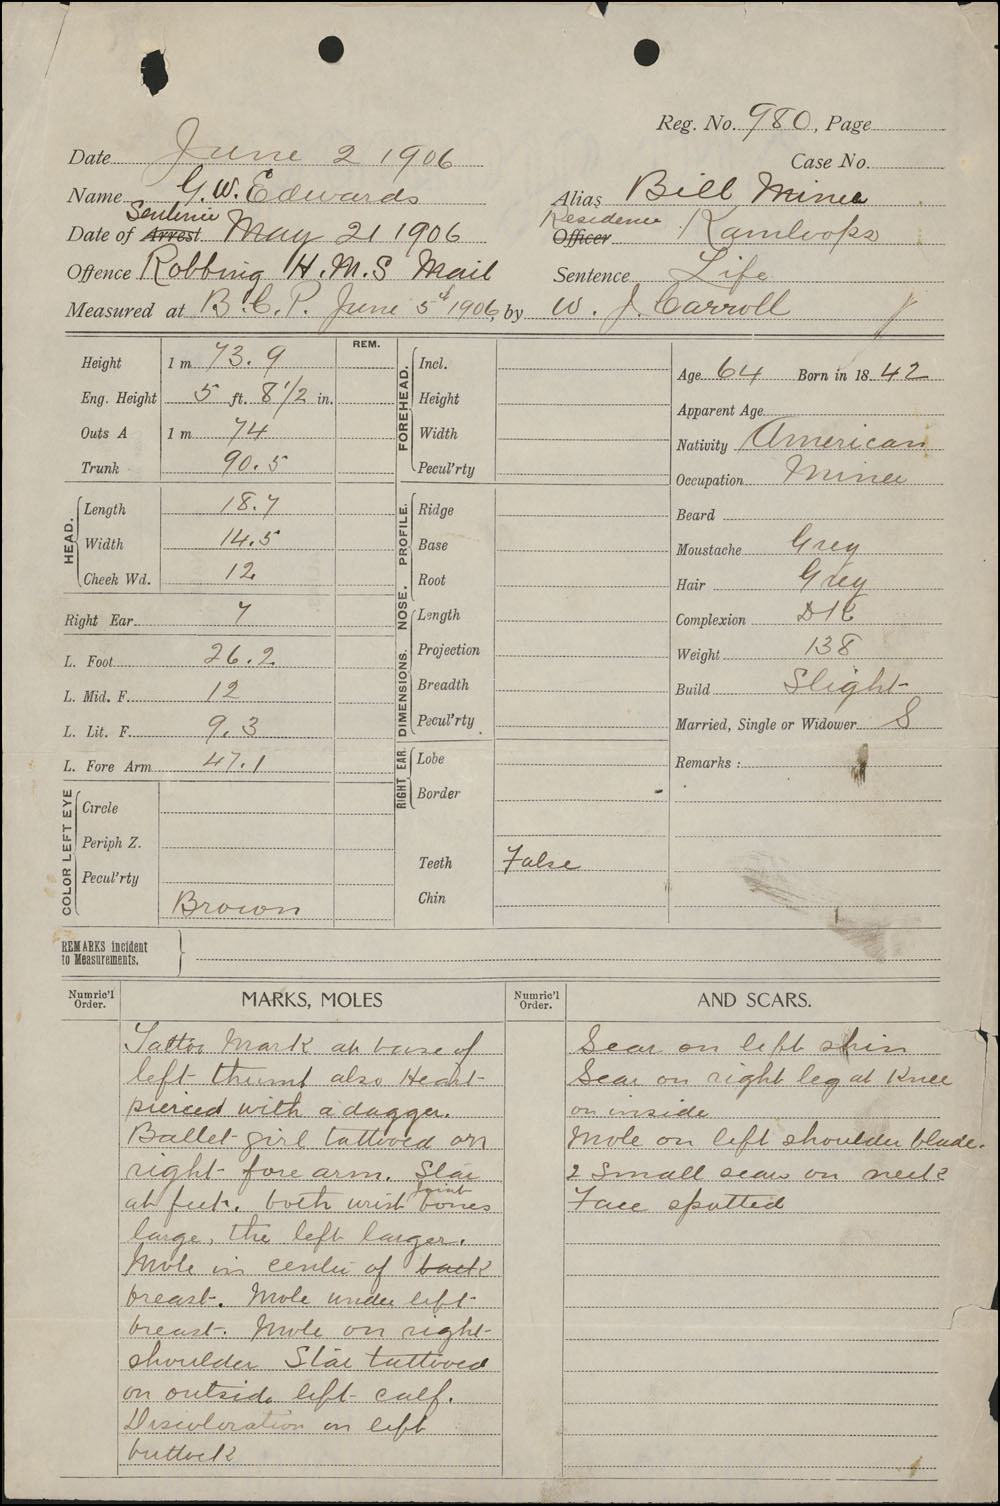 Reg. No. 980, Page
Date June 2 1906
Case No.
Name G.W. Edwards
Alias Bill Miner
Sentence
Residence
Date of Arrest May 21 1906
Officer Kamloops
Offence Robbing H.M.S Mail
Sentence Life
Measured at B.C.P. June 5th 1906, by W. J. Carroll
REM.
Height 1 m 73.9
Eng. Height 5 ft. 8 1/2 in.
Outs A 1 m 74
Trunk 90.5
HEAD.
Length 18.7
Width 14.5
Cheek Wd. 12
Right Ear 7
L. Foot 26.2
L. Mid. F. 12
L. Lit. F. 9.3
L. Fore Arm 47.1
COLOR LEFT EYE
Circle
Periph Z.
Pecul'rty
Brown
FOREHEAD.
Incl.
Height
Width
Pecul'rty
NOSE. PROFILE.
Ridge
Base
Root
DIMENSIONS.
Length
Projection
Breadth
Pecul'rty
RIGHT EAR
Lobe
Border
Teeth False
Chin
Age 64 Born in 18 42
Apparent Age
Nativity American
Occupation Miner
Beard
Moustache Grey
Hair Grey
Complexion DK
Weight 138
Build Slight
Married, Single or Widower S
Remarks :
REMARKS incident
to Measurements.
Numric'l
Order.
MARKS, MOLES
Numric'l
Order.
AND SCARS.
Tattoo Mark at base of
left thumb also Heart
pierced with a dagger.
Ballet girl tattooed on
right fore arm. Star
at feet. both wrist joint bones
large, the left larger.
Mole in center of back
breast. Mole under left
breast. Mole on right
shoulder Star tattooed
on outside left calf.
Discoloration on left
buttock
Scar on left shin
Scar on right leg at Knee
on inside
Mole on left shoulder blade.
2 Small scars on neck
Face spotted